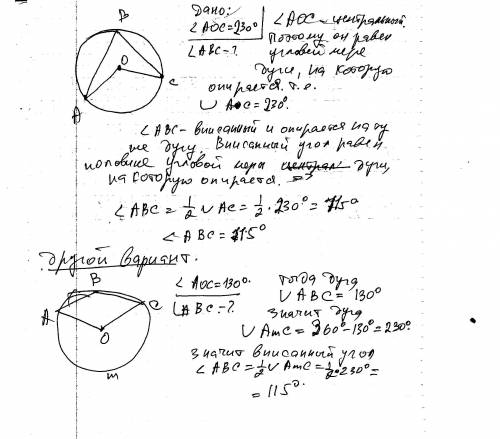 B
O
A
C
Дано:
∠AOC=230°
∠ABC-?
∠AOC - центральный.
Поэтому он равен
угловой мере
дуги, на которую
опирается. т.е.
∪ AC=230°.
∠ABC - вписанный и опирается на ту
же дугу. Вписанный угол равен
половине угловой меры дуги,
на которую опирается. ⇒
∠ABC = 1/2 ∪ AC = 1/2 · 230° = 115°
∠ABC = 115°
Другой вариант.
B
A
C
O
m
∠AOC=130°.
∠ABC-?
тогда дуга
∪ ABC = 130°
значит дуга
∪ AmC = 360°-130°=230°.
значит вписанный угол
∠ABC = 1/2 ∪ AmC = 1/2·230°=
= 115°.